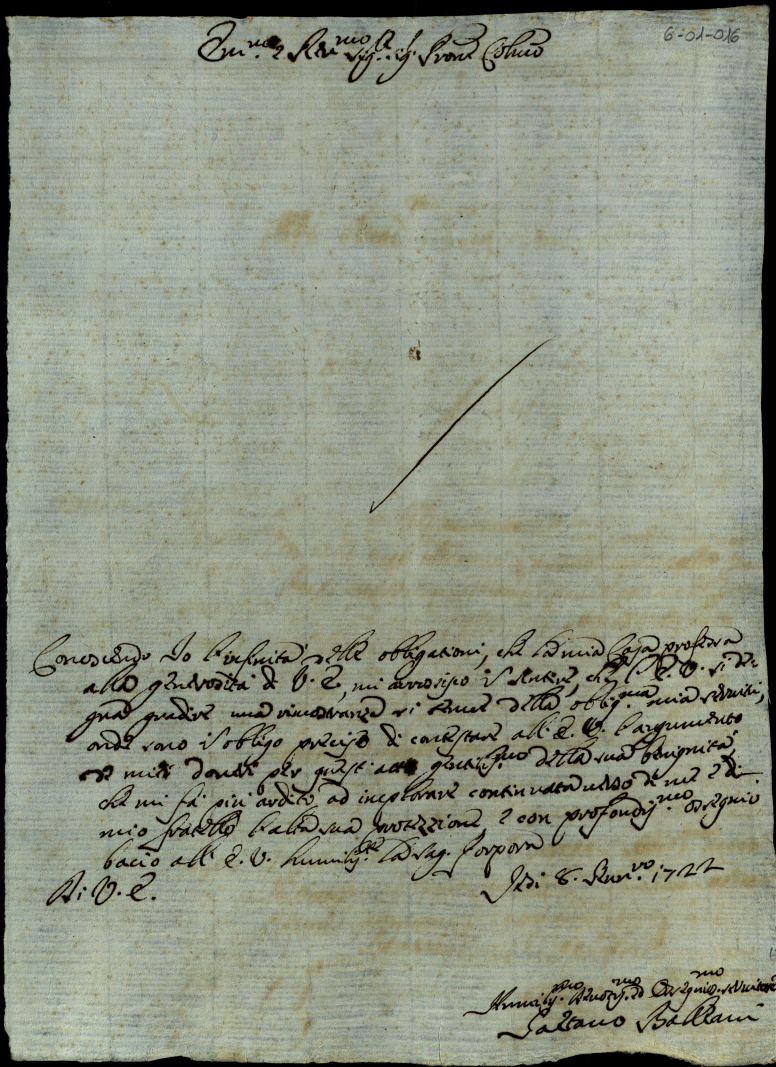 6-01-016
Em.mo e Rev.mo Sig.r Sig.r Pron Colmo
Conoscendo Io l'infinità delle obbligationi, che la mia Casa professa
alla generosità di V. E., mi arrossisco il sentire, che l' E. V. si de
gna gradire una rimostranza sì tenue della oblig.ma mia servitù,
onde sono in obligo preciso di contestare all' E. V. l'argumento
de miei doveri per questi atti gentiliss.mo della sua benignità,
che mi fà più ardito ad implorare continuatamente verso di me e di
mio fratello l'alta sua protezzione e con profondiss.mo ossequio
bacio all' E. V. humiliss.te la sag. Porpora
Di V. E.
Jesi 8. 1722
Humiliss.mo Devotiss.mo ed Osseq.mo servitore
Gaetano Ballani